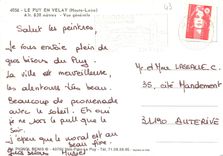 4056 - LE PUY EN VELAY (Haute-Loire)
Alt. 630 mètres - Vue générale
63
Salut les peintres,
Je vous envoie plein de
gros bisous du Puy.
La ville est merveilleuse,
les alentours très beau.
Beaucoup de promenade
avec le soleil. Et oui
je ne sors le pull que le
soir. J'espère que le moral est au
beau fixe.
Gros bisous Muriel
Mr et Mme LASSALLE C.
35, cité Mandement
31190 AUTERIVE